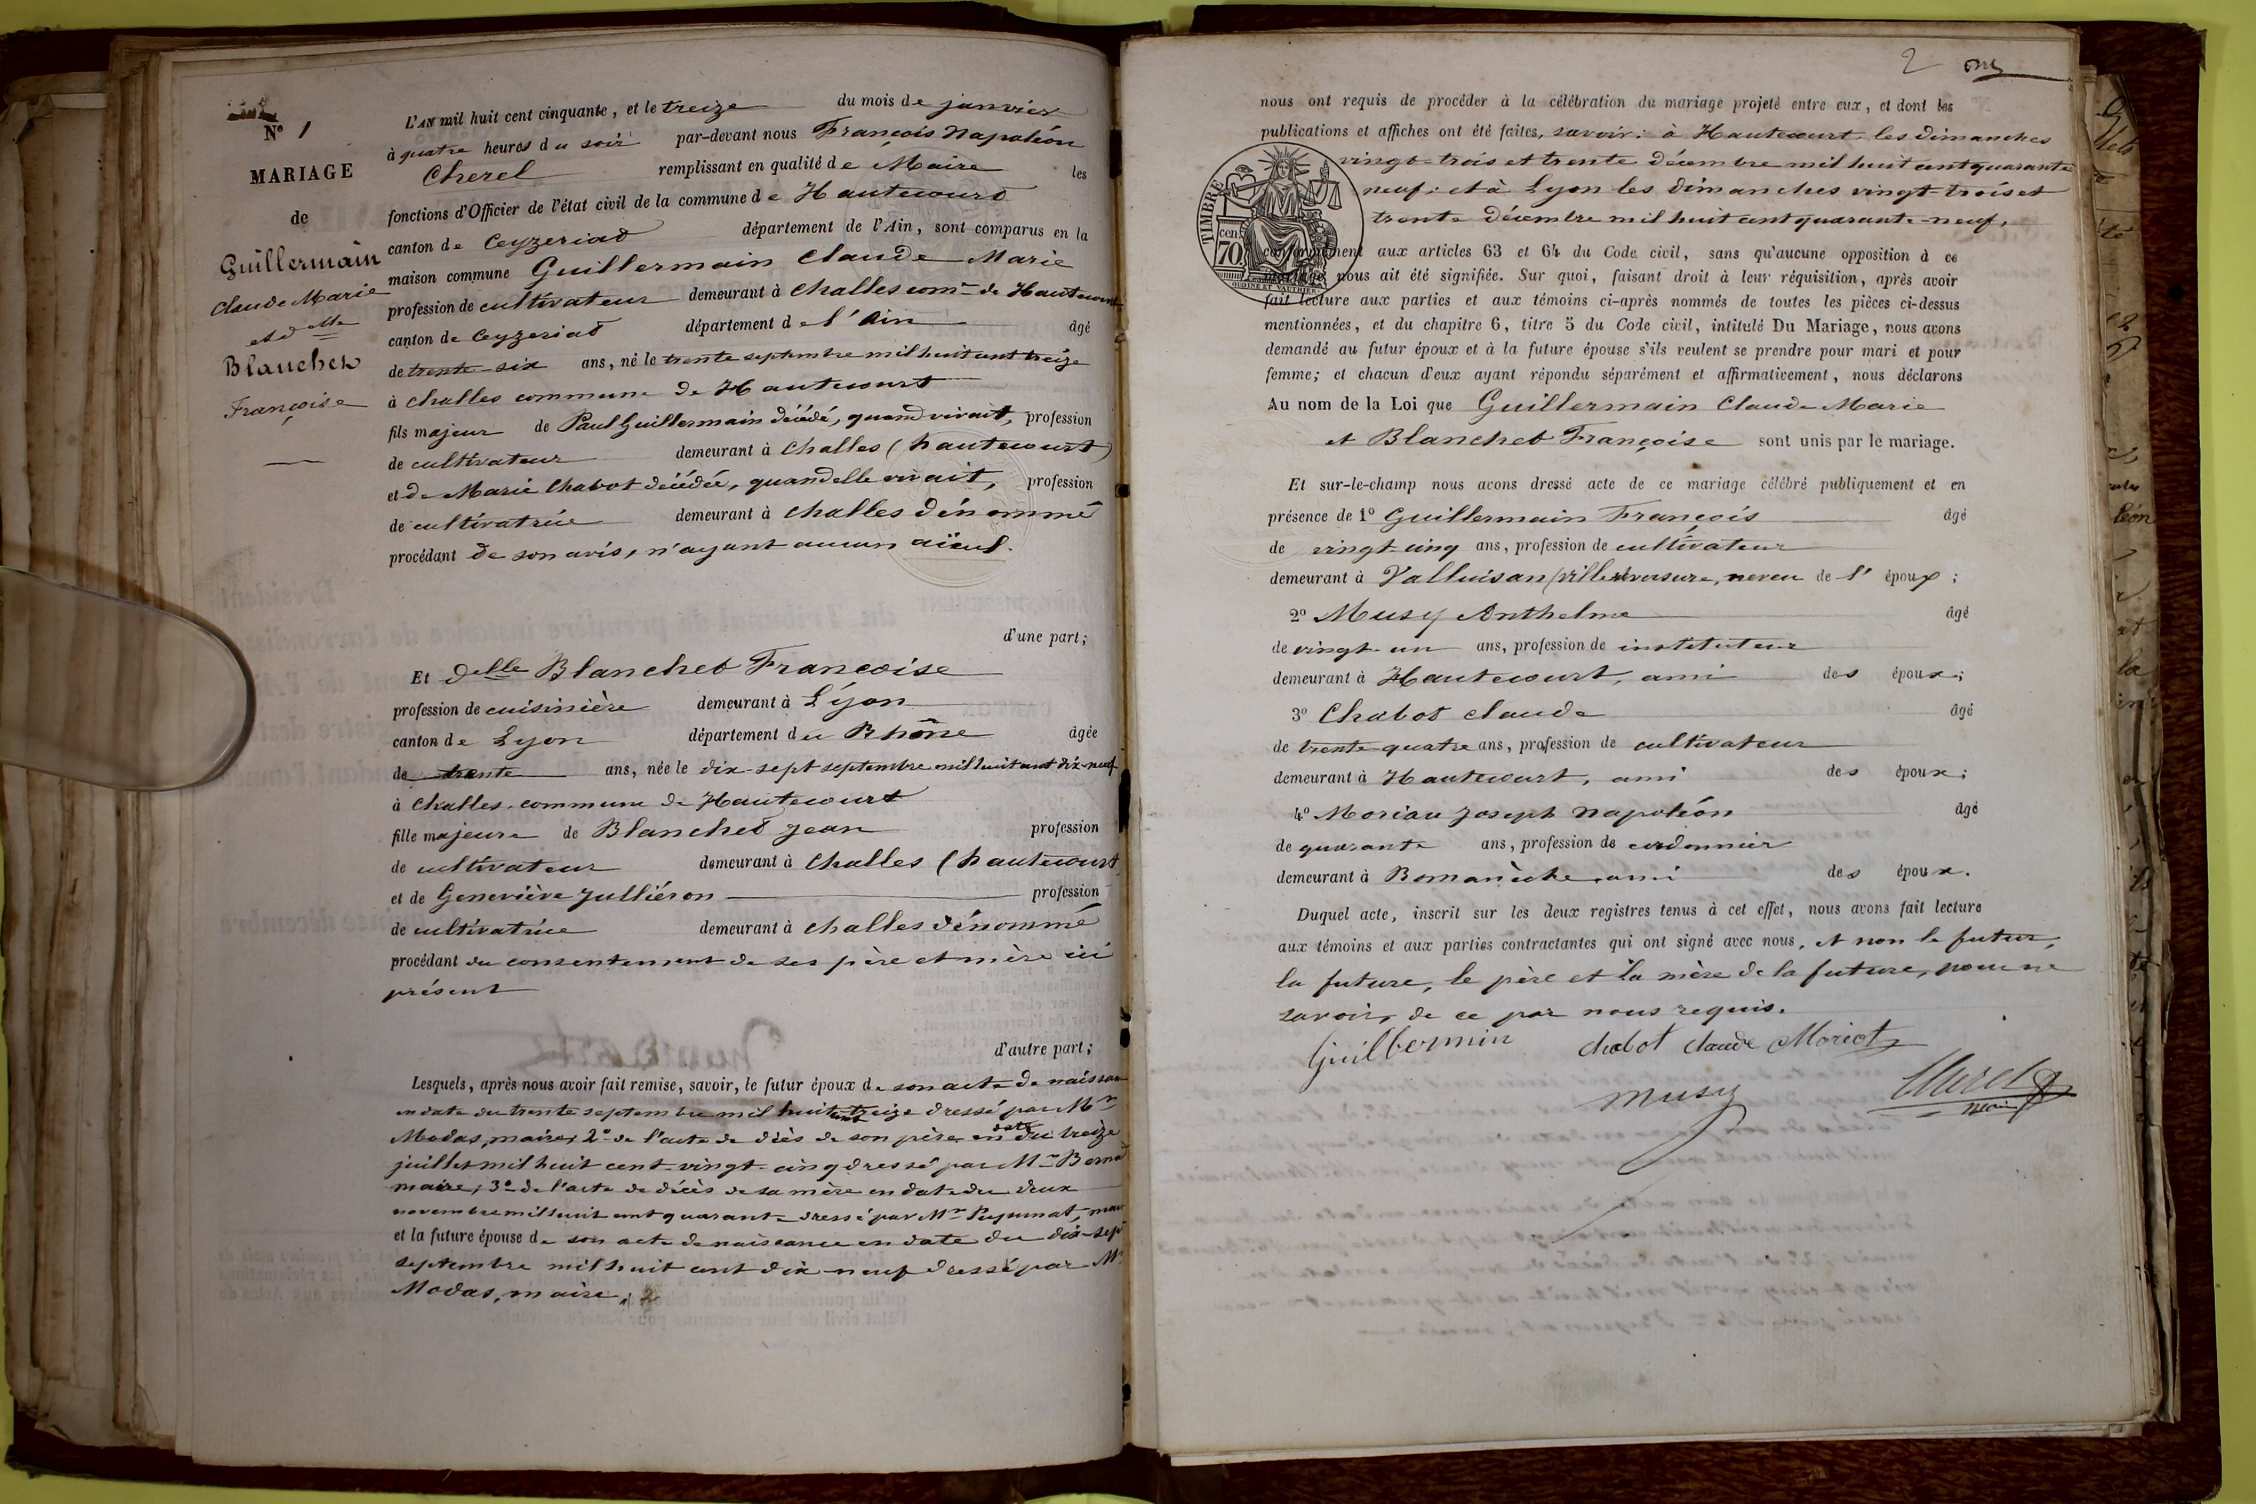 N° 1
MARIAGE
de
Guillermain
Claude Marie
et dlle
Blanchet
Françoise
L'AN mil huit cent cinquante, et le treize du mois de janvier
à quatre heures du soir par-devant nous François Napoléon
Cherel remplissant en qualité de Maire les
fonctions d'Officier de l'état civil de la commune de Hautecourt
canton de Ceyzeriat département de l'Ain, sont comparus en la
maison commune Guillermain Claude Marie
profession de cultivateur demeurant à Challes comne de Hautecourt
canton de Ceyzeriat département de l'Ain âgé
de trente-six ans, né le trente septembre mil huit cent treize
à Challes commune de Hautecourt
fils majeur de Paul Guillermain décédé, quand vivait, profession
de cultivateur demeurant à Challes (hautecourt)
et de Marie Chabot décédée, quand elle vivait, profession
de cultivatrice demeurant à Challes dénommé
procédant de son avis, n'ayant aucun aïeul.
d'une part;
Et delle Blanchet Francoise
profession de cuisinière demeurant à Lyon
canton de Lyon département du Rhône âgée
de trente ans, née le dix-sept septembre mil huit cent dix-neuf
à Challes commune de Hautecourt
fille majeure de Blanchet Jean profession
de cultivateur demeurant à Challes (hautecourt
et de Geneviève Julliéron profession
de cultivatrice demeurant à Challes dénommé
procédant du consentement de ses père et mère ici
présent
d'autre part;
Lesquels, après nous avoir fait remise, savoir, le futur époux de son acte de naissan
en date du trente septembre mil huit cent treize dressé par Mr
Modas, maire, 2° de l'acte de décès de son père en date du treize
juillet mil huit cent vingt-cinq dressé par Mr
maire, 3° de l'acte de décès de sa mère en date du deux
novembre mil huit cent quarante dressé par Mr
et la future épouse de son acte de naissance en date du dix-sept
septembre mil huit cent dix-neuf dressé par Mr
Modas, maire;
2
nous ont requis de procéder à la célébration du mariage projeté entre eux, et dont les
publications et affiches ont été faites, savoir: à Hautecourt les dimanches
vingt-trois et trente décembre mil huit cent quarante
neuf; et à Lyon les dimanches vingt-trois et
trente décembre mil huit cent quarante-neuf,
TIMBRE
70 cen
OUDINÉ ET VAUTHIER
conformément aux articles 63 et 64 du Code civil, sans qu'aucune opposition à ce
mariage nous ait été signifiée. Sur quoi, faisant droit à leur réquisition, après avoir
fait lecture aux parties et aux témoins ci-après nommés de toutes les pièces ci-dessus
mentionnées, et du chapitre 6, titre 5 du Code civil, intitulé Du Mariage, nous avons
demandé au futur époux et à la future épouse s'ils veulent se prendre pour mari et pour
femme; et chacun d'eux ayant répondu séparément et affirmativement, nous déclarons
Au nom de la Loi que Guillermain Claude Marie
et Blanchet Françoise sont unis par le mariage.
Et sur-le-champ nous avons dressé acte de ce mariage célébré publiquement et en
présence de 1° Guillermain François âgé
de vingt-cinq ans, profession de cultivateur
demeurant à Valluisan (villereversure, neveu de l'époux;
2° Musy Anthelme âgé
de vingt-un ans, profession de instituteur
demeurant à Hautecourt, ami des époux;
3° Chabot Claude âgé
de trente-quatre ans, profession de cultivateur
demeurant à Hautecourt, ami des époux;
4° Moriau Joseph Napoléon âgé
de quarante ans, profession de cordonnier
demeurant à Bomanèche, ami des époux.
Duquel acte, inscrit sur les deux registres tenus à cet effet, nous avons fait lecture
aux témoins et aux parties contractantes qui ont signé avec nous, et non le futur,
la future, le père et la mère de la future, pour ne
savoir, de ce par nous requis.
Guillermin Chabot Claude Moriot
Musy Cherel
maire